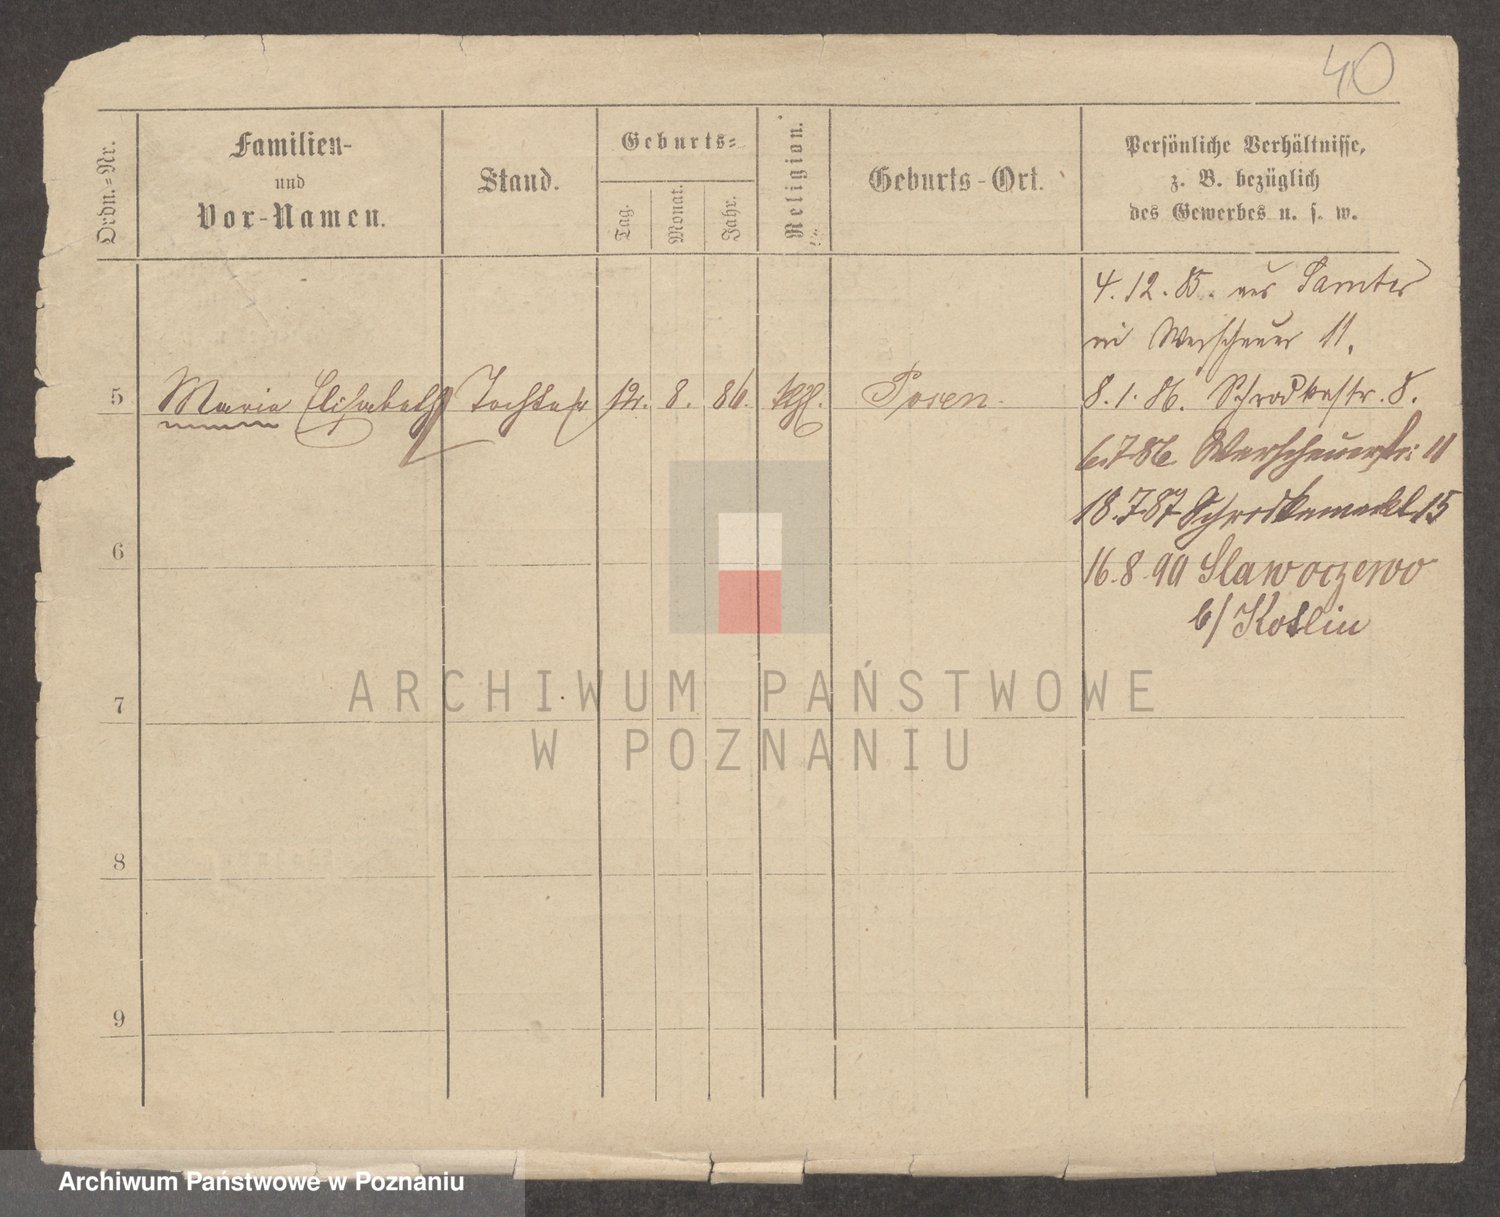 40
Ordn.-Nr.
Familien-
und
Vor-Namen.
Stand.
Geburts-
Tag.
Monat.
Jahr.
Religion.
Geburts-Ort.
Persönliche Verhältnisse,
z. B. bezüglich
des Gewerbes u. s. w.
4. 12. 85. aus Samter
11.
5 Marie Elisabeth Tochter 12. 8. 86. kth. Posen.
8. 1. 86. Schrodkastr. 8.
6.7 86 11
18.7 87 Schrodkamarkt 15
16.8.90 Slawoczewo
b/ Kotlin
6
7
8
9
ARCHIWUM PAŃSTWOWE
W POZNANIU
Archiwum Państwowe w Poznaniu